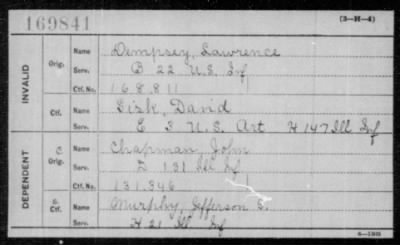 169841
(3-H-4)
INVALID
Orig.
Name Dempsey, Lawrence
Serv. B 22 U.S. Inf
Ctf. No. 168811
Ctf.
Name Sisk, David
Serv. E 3 U.S. Art H 147 Ill Inf
DEPENDENT
C. Orig.
Name Chapman, John
Serv. I 131 Ill Inf
Ctf. No. 131,346
Ctf.
Name Murphy, Jefferson
Serv. H 21 Ill Inf